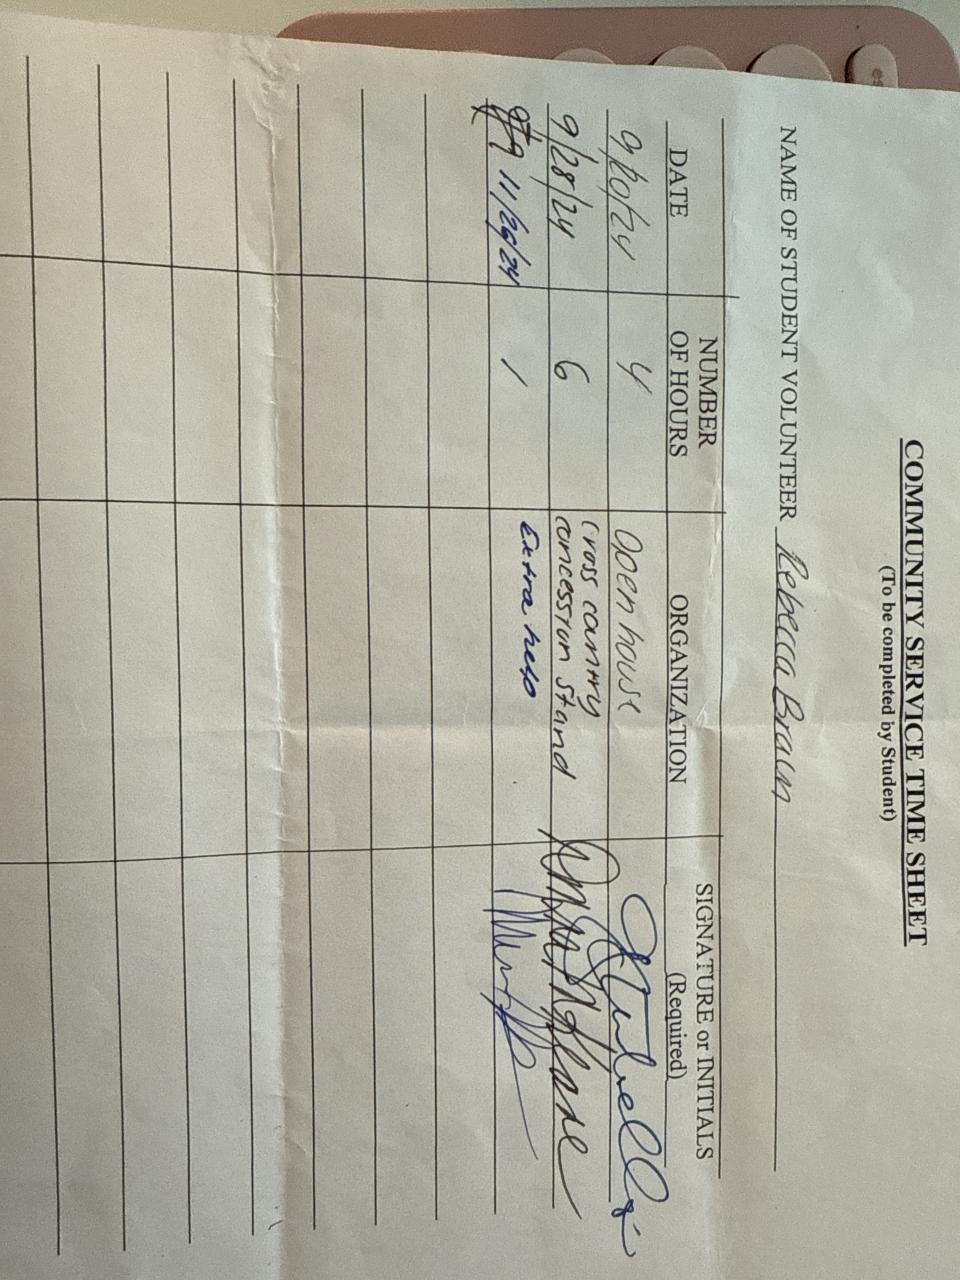 COMMUNITY SERVICE TIME SHEET
(To be completed by Student)
NAME OF STUDENT VOLUNTEER Rebecca Braun
DATE NUMBER OF HOURS ORGANIZATION SIGNATURE or INITIALS (Required)
9/20/24 4 Open house
9/28/24 6 Cross cantry
concession stand
11/26/24 1 Extra help
es